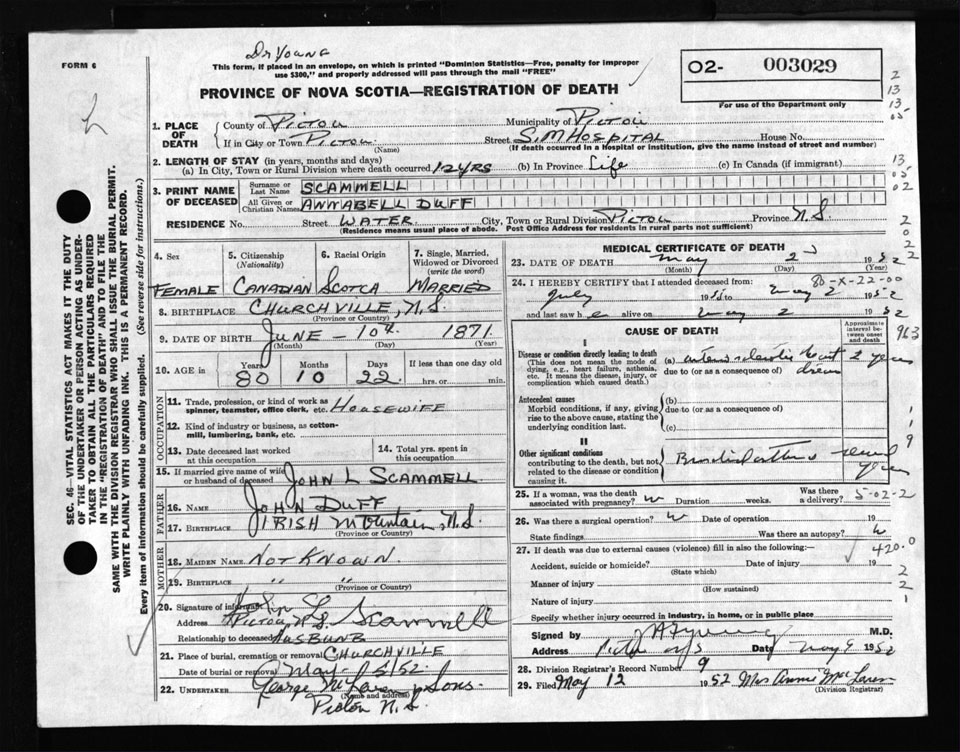 Dr Young
FORM 6
This form, if placed in an envelope, on which is printed "Dominion Statistics—Free, penalty for improper
use $300," and properly addressed will pass through the mail "FREE"
PROVINCE OF NOVA SCOTIA—REGISTRATION OF DEATH
O2- 003029
For use of the Department only
SEC. 46—VITAL STATISTICS ACT MAKES IT THE DUTY
OF THE UNDERTAKER OR PERSON ACTING AS UNDER-
TAKER TO OBTAIN ALL THE PARTICULARS REQUIRED
IN THE "REGISTRATION OF DEATH" AND TO FILE THE
SAME WITH THE DIVISION REGISTRAR WHO SHALL ISSUE THE BURIAL PERMIT.
WRITE PLAINLY WITH UNFADING INK. THIS IS A PERMANENT RECORD.
Every item of information should be carefully supplied. (See reverse side for instructions.)
1. PLACE OF DEATH
County of Pictou Municipality of Pictou
If in City or Town Pictou Street S.M Hospital House No.
(Name) (If death occurred in a Hospital or institution, give the name instead of street and number)
2. LENGTH OF STAY (in years, months and days)
(a) In City, Town or Rural Division where death occurred 12 YRS (b) In Province Life (c) In Canada (if immigrant)
3. PRINT NAME OF DECEASED
Surname or Last Name SCAMMELL
All Given or Christian Names ANNABELL DUFF
RESIDENCE No. Street WATER City, Town or Rural Division Pictou Province N.S.
(Residence means usual place of abode. Post Office Address for residents in rural parts not sufficient)
4. Sex FEMALE
5. Citizenship (Nationality) CANADIAN
6. Racial Origin SCOTCH
7. Single, Married, Widowed or Divorced (write the word) MARRIED
8. BIRTHPLACE CHURCHVILLE, N.S.
(Province or Country)
9. DATE OF BIRTH JUNE - 10th 1871
(Month) (Day) (Year)
10. AGE in Years 80 Months 10 Days 22 If less than one day old
hrs. or min.
OCCUPATION
11. Trade, profession, or kind of work as
spinner, teamster, office clerk, etc. HOUSEWIFE
12. Kind of industry or business, as cotton-
mill, lumbering, bank, etc.
13. Date deceased last worked
at this occupation
14. Total yrs. spent in
this occupation
15. If married give name of wife
or husband of deceased JOHN L SCAMMELL
FATHER
16. Name JOHN DUFF
17. Birthplace IRISH Mountain, N.S.
(Province or Country)
MOTHER
18. Maiden Name Not Known.
19. Birthplace " "
(Province or Country)
20. Signature of informant John L. Scammell
Address Pictou N.S.
Relationship to deceased HUSBUNB
21. Place of burial, cremation or removal CHURCHVILLE
Date of burial or removal May - 5/52.
22. UNDERTAKER George McLaren & Sons.
(Name and address)
Pictou N.S.
MEDICAL CERTIFICATE OF DEATH
23. DATE OF DEATH May 2 1952
(Month) (Day) (Year)
80-X-22-00
24. I HEREBY CERTIFY that I attended deceased from:
July to May 2 1952
and last saw h e alive on May 2 1952
CAUSE OF DEATH
Approximate interval between onset and death
I
Disease or condition directly leading to death
(This does not mean the mode of
dying, e.g., heart failure, asthenia,
etc. It means the disease, injury, or
complication which caused death.)
(a) arteriosclerotic heart 2 years
due to (or as a consequence of)
Antecedent causes
Morbid conditions, if any, giving
rise to the above cause, stating the
underlying condition last.
(b)
due to (or as a consequence of)
(c)
II
Other significant conditions
contributing to the death, but not
related to the disease or condition
causing it.
25. If a woman, was the death
associated with pregnancy? Duration weeks. Was there a delivery?
5-02-2
26. Was there a surgical operation? Date of operation 19
State findings Was there an autopsy?
27. If death was due to external causes (violence) fill in also the following:—
420.0
Accident, suicide or homicide? Date of injury 19
(State which)
Manner of injury
(How sustained)
Nature of injury
Specify whether injury occurred in industry, in home, or in public place
Signed by M.D.
Address Pictou N/S Date May 9 1952
28. Division Registrar's Record Number 9
29. Filed May 12 1952 Mrs Annie MacLaren
(Division Registrar)
2
13
13
05
13
05
02
2
0
2
2
963
1
1
9
2
2
1